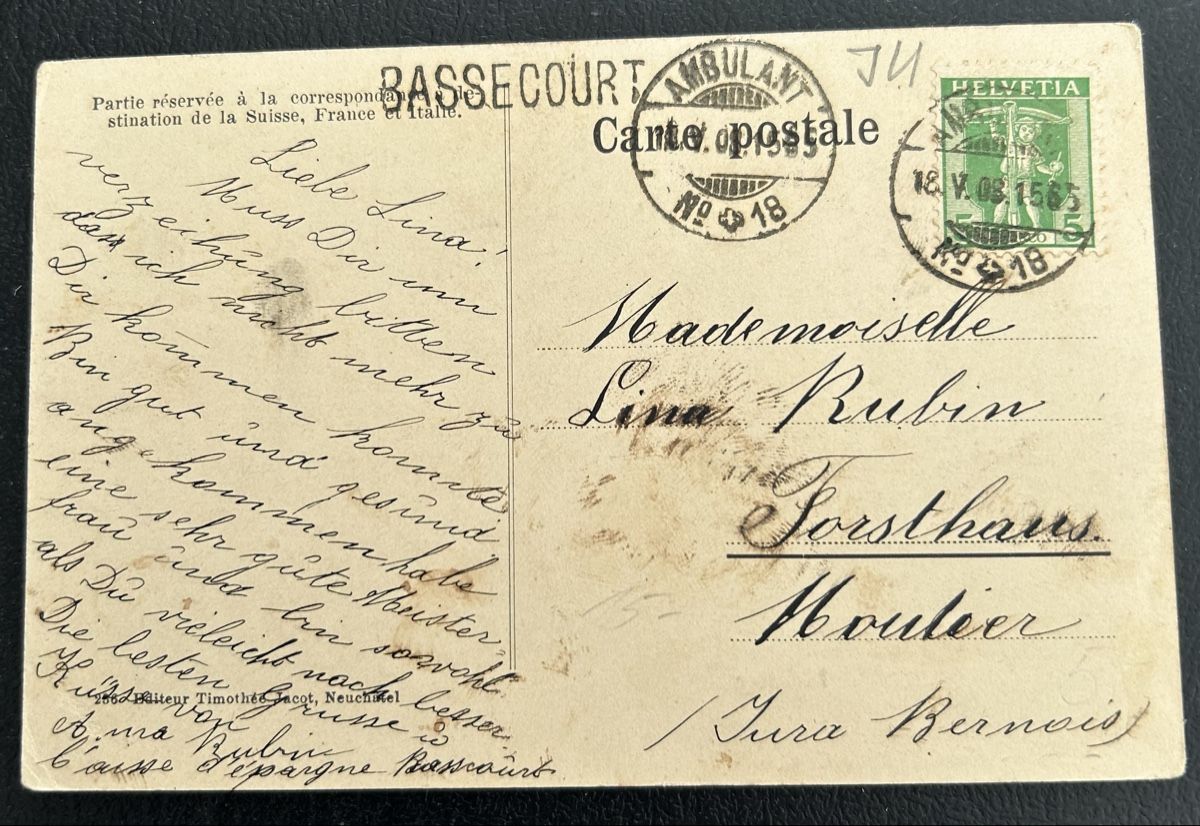 Partie réservée à la correspondance
stination de la Suisse, France et Italie.
BASSECOURT
AMBULANT
18.V.09.1565
No 18
Carte postale
J4
HELVETIA
5 5
AMBULANT
18.V.09.1565
No 18
Liebe Lina!
Muss Dir um
verzeihung bitten
dass ich nicht mehr zu
Dir kommen konnte
Bin gut und gesund
angekommen habe
eine sehr gute Meister-
frau und bin sowohl
als Du vieleicht noch besser
Die besten Grüsse u
Küsse von
Anna Rubin
Caisse d'épargne Bassecourt
Editeur Timothée Jacot, Neuchâtel
Mademoiselle
Lina Rubin
Forsthaus.
Moutier
(Jura Bernois)
15.-